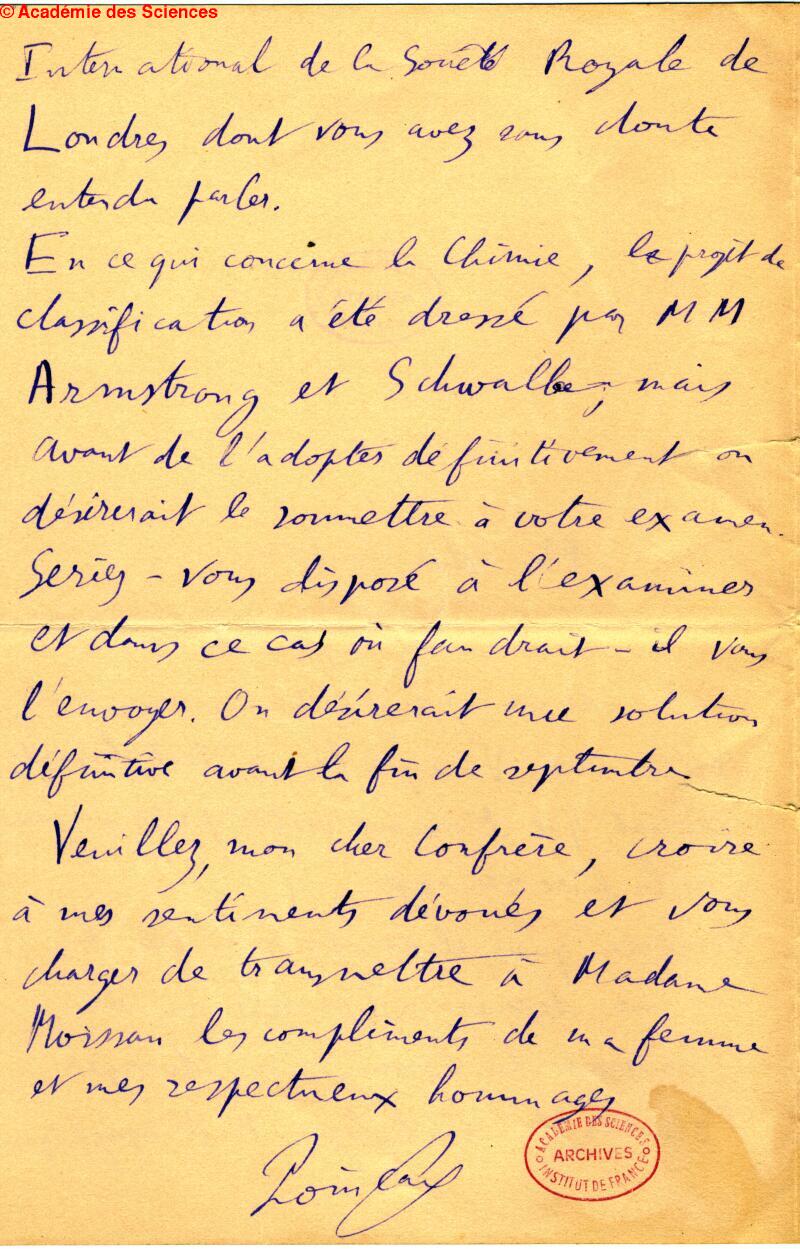 © Académie des Sciences
International de la Société Royale de
Londres dont vous avez sans doute
entendu parler.
En ce qui concerne la Chimie, le projet de
classification a été dressé par MM
Armstrong et Schwalbe, mais
avant de l'adopter définitivement on
désirerait le soumettre à votre examen.
Seriez-vous disposé à l'examiner
et dans ce cas où faudrait-il vous
l'envoyer. On désirerait une solution
définitive avant la fin de septembre
Veuillez, mon cher Confrère, croire
à mes sentiments dévoués et vous
charger de transmettre à Madame
Moissan les compliments de ma femme
et mes respectueux hommages
Poincaré
ACADÉMIE DES SCIENCES
ARCHIVES
INSTITUT DE FRANCE